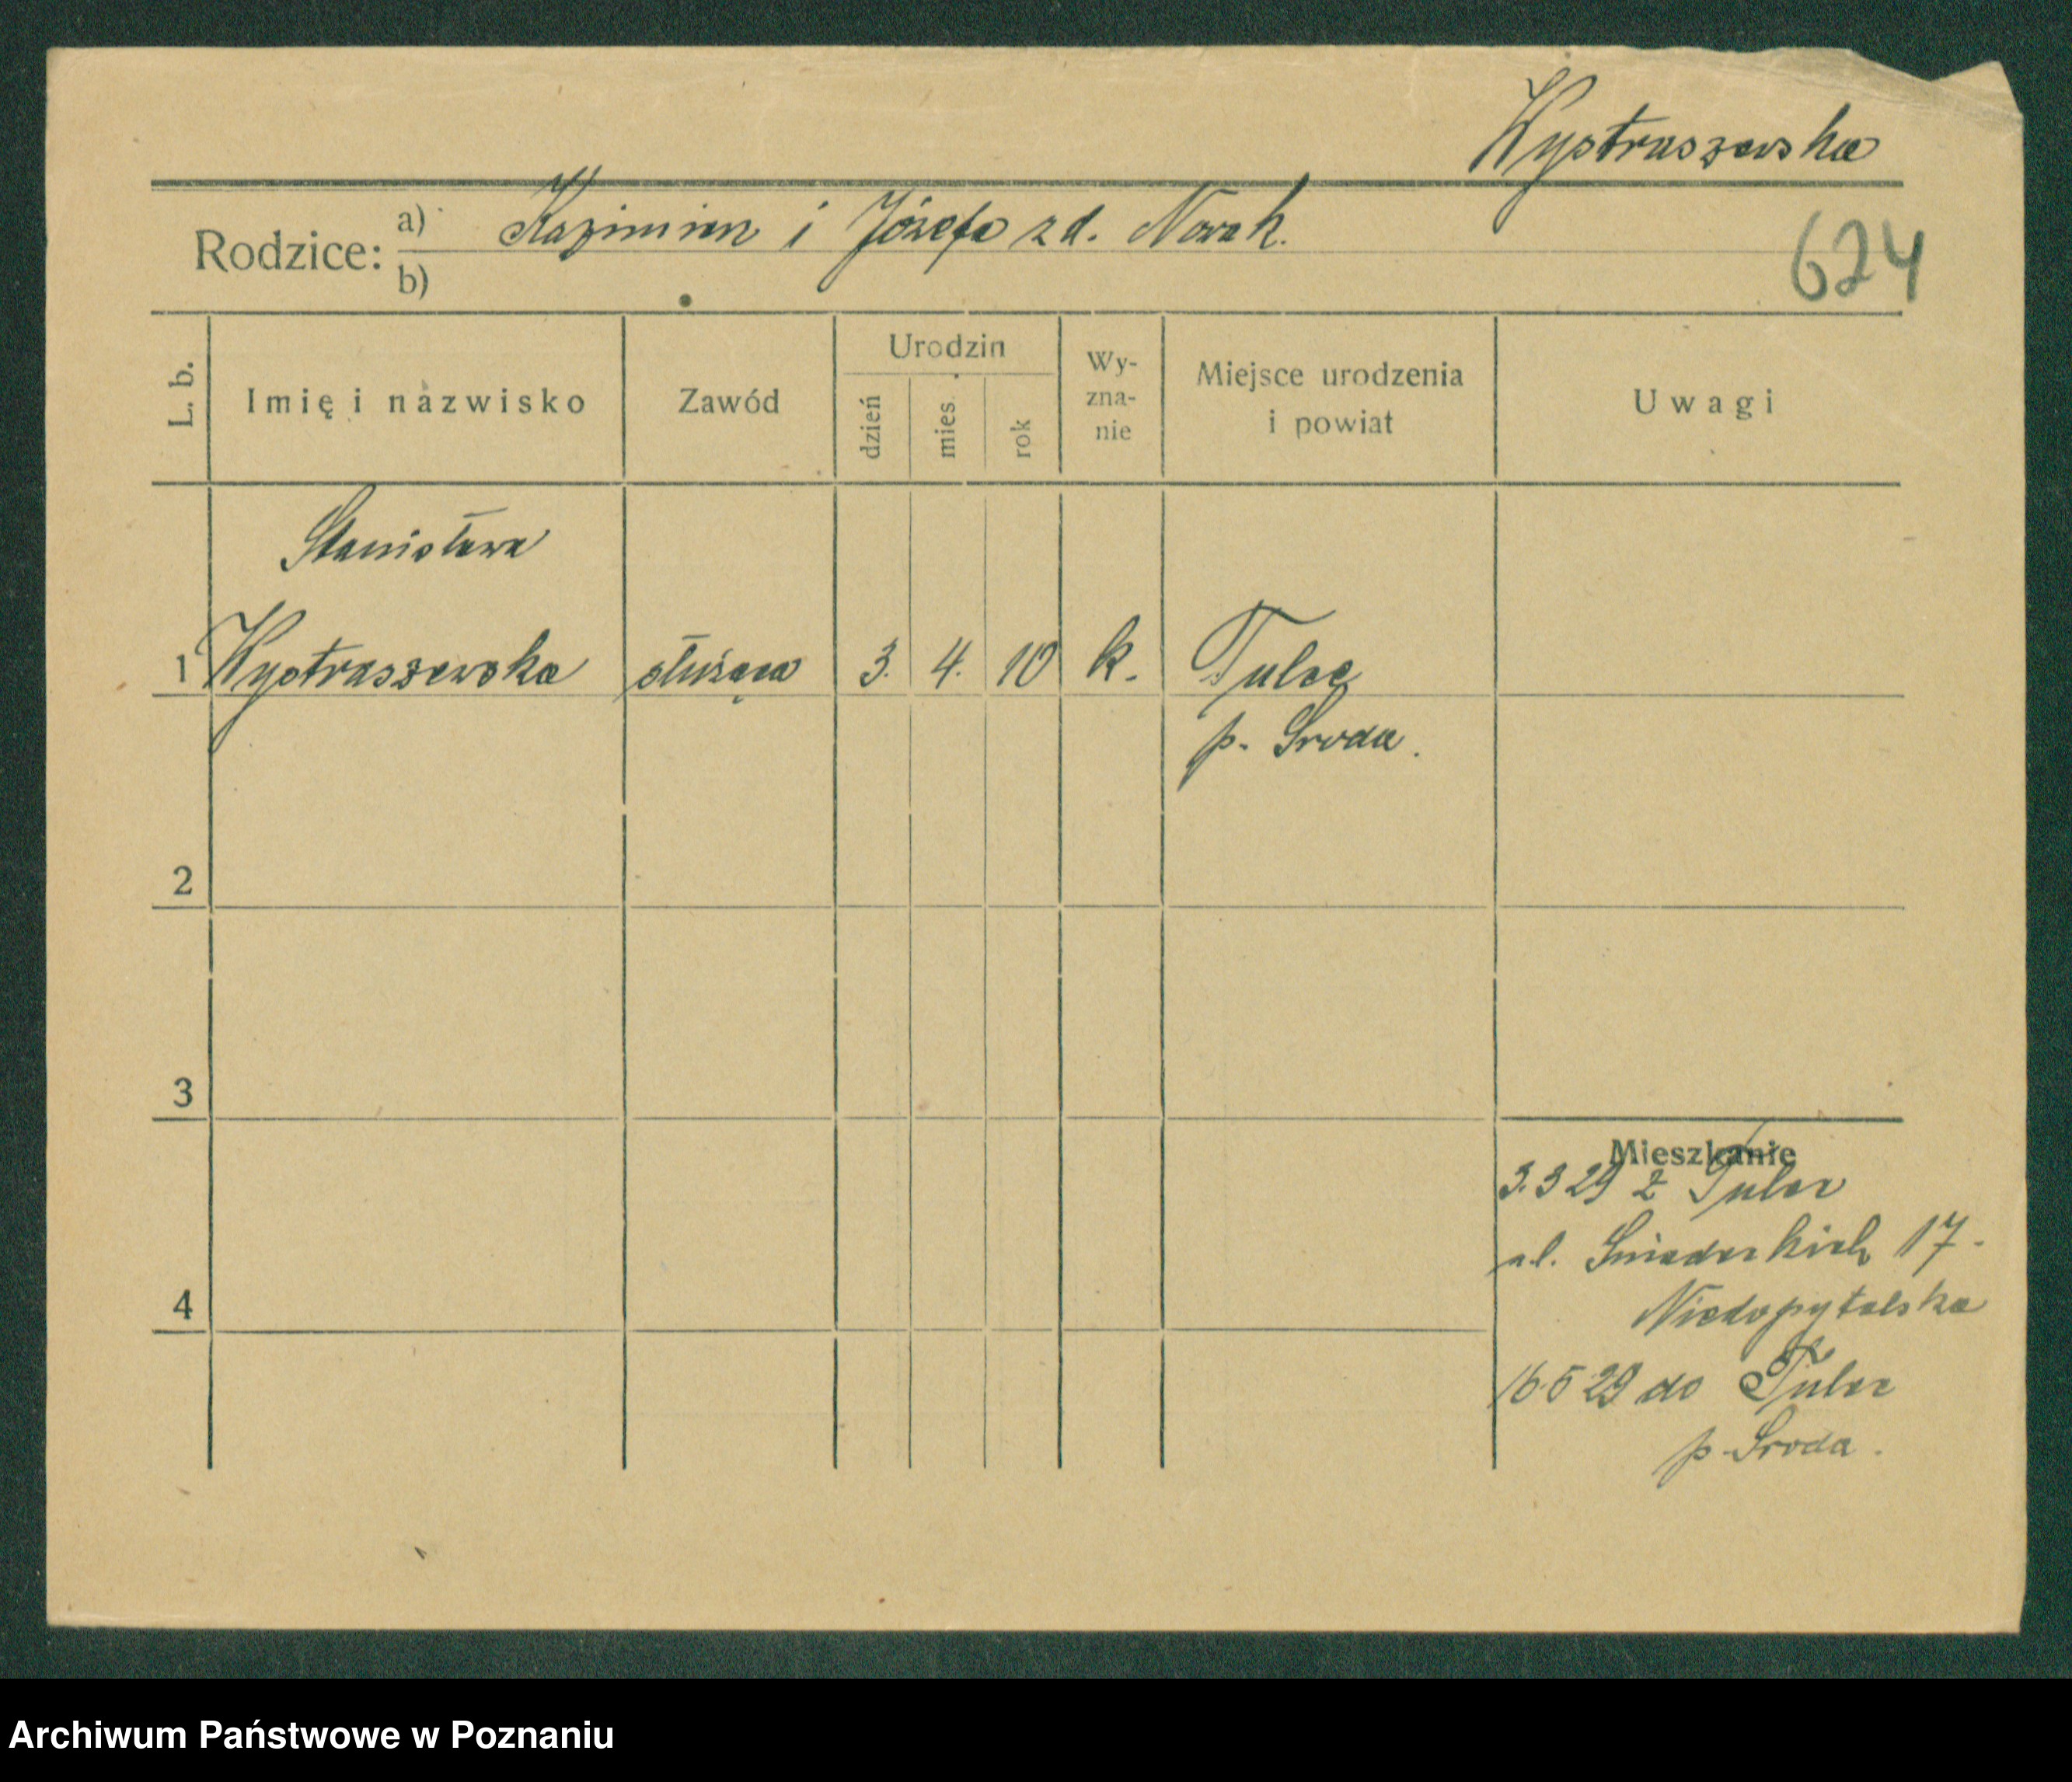 Wystraszewska
Rodzice: a) Kazimierz i Józefa z d. Nowak.
b)
624
L. b.
Imię i nazwisko
Zawód
Urodzin
dzień
mies.
rok
Wy-
zna-
nie
Miejsce urodzenia
i powiat
Uwagi
Stanisława
1 Wystraszewska służąca 3. 4. 10 k. Tulce
p. Sroda.
2
3
4
Mieszkanie
3.3 29 z Tulec
ul. Sniadeckich 17-
Niedopytalska
16.5 29 do Tulec
p. Sroda.
Archiwum Państwowe w Poznaniu